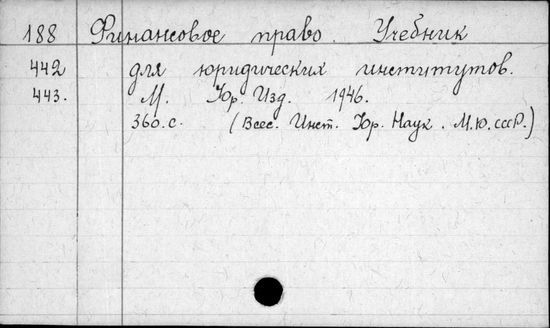 188 Финансовое право. Учебник
442 для юридических институтов.
443. М. Юр. Изд. 1946.
360.с. (Всес. Инст. Юр. Наук. М.Ю.СССР.)